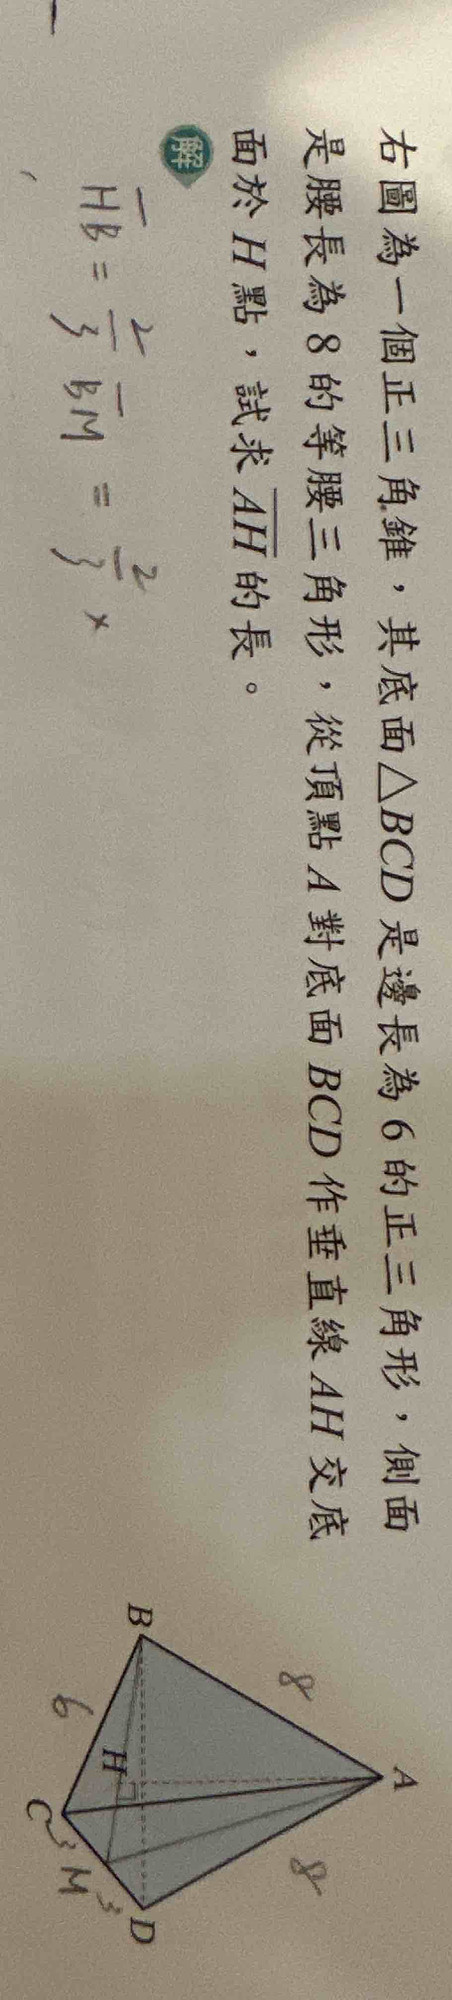 右圖為一個正三角錐，其底面△BCD 是邊長為 6 的正三角形，側面
是腰長為 8 的等腰三角形，從頂點 A 對底面 BCD 作垂直線 AH 交底
面於 H 點，試求 AH 的長。
解
HB = 2/3 BM = 2/3 ×
A
8
8
B
H
D
6
C
3
M
3